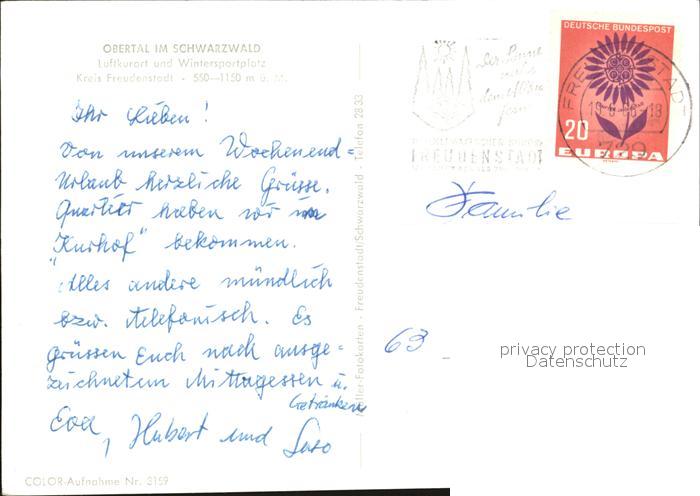 OBERTAL IM SCHWARZWALD
Luftkurort und Wintersportplatz
Kreis Freudenstadt - 550—1150 m ü. M.
Ihr Lieben!
Von unserem Wochenend=
Urlaub herzliche Grüsse.
Quartier haben wir im
"Kurhof" bekommen.
Alles andere mündlich
bzw. telefonisch. Es
grüssen Euch nach ausge=
zeichnetem Mittagessen u.
Getränken
Eva, Hubert und
COLOR-Aufnahme Nr. 3159
-Fotokarten - Freudenstadt/Schwarzwald - Telefon 28 33
Der Sonne
FREUDENSTADT
DEUTSCHE BUNDESPOST
20
EUROPA
Familie
63
privacy protection
Datenschutz